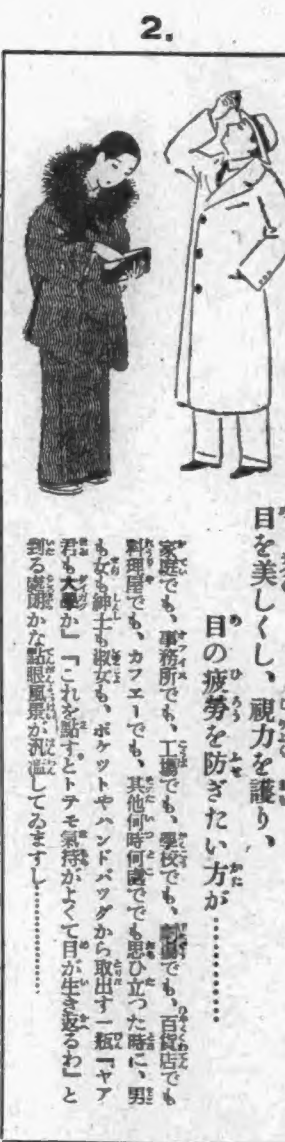 2.
目を美しくし、視力を護り、
目の疲勞を防ぎたい方が…………
家庭でも、事務所でも、工場でも、學校でも、劇場でも、百貨店でも
料理屋でも、カフエーでも、其他何時何處ででも思ひ立つた時に、男
も女も紳士も淑女も、ポケツトやハンドバツグから取出す一瓶『ヤア
君も大學か』『これを點すとトテモ氣持がよくて目が生き返るわ』と
到る處朗かな點眼風景が氾濫してゐますし…………